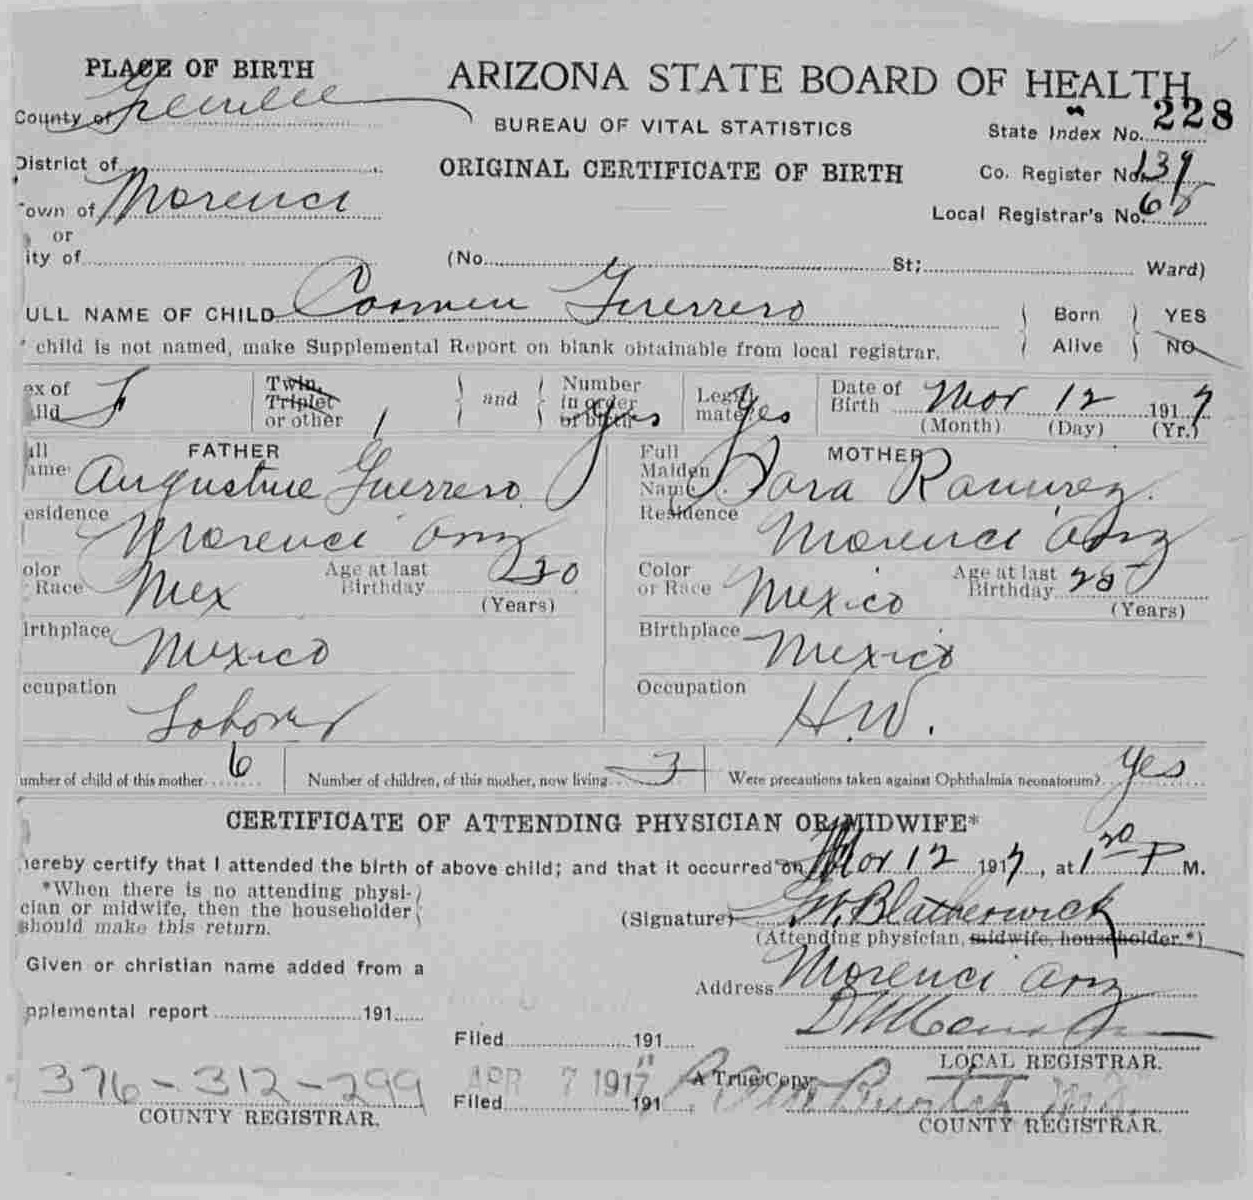 PLACE OF BIRTH
ARIZONA STATE BOARD OF HEALTH
County of Greenlee
BUREAU OF VITAL STATISTICS
State Index No. 228
District of
ORIGINAL CERTIFICATE OF BIRTH
Co. Register No. 139
own of Morenci
Local Registrar's No. 68
or
ity of (No. St; Ward)
ULL NAME OF CHILD Carmen Guerrero
Born Alive YES NO
child is not named, make Supplemental Report on blank obtainable from local registrar.
ex of ild F
Twin, Triplet or other 1
and
Number in order of birth yes
Legitimate? Yes
Date of Birth Mar 12 1917
(Month) (Day) (Yr.)
FATHER
ull ame Augustine Guerrero
MOTHER
Full Maiden Name Sara Ramirez.
esidence Morenci Ariz
Residence Morenci Ariz
olor Race Mex
Age at last Birthday 20 (Years)
Color or Race Mexico
Age at last Birthday 28 (Years)
irthplace Mexico
Birthplace Mexico
ccupation Laborer
Occupation H.W.
umber of child of this mother 6
Number of children, of this mother, now living 3
Were precautions taken against Ophthalmia neonatorum? Yes
CERTIFICATE OF ATTENDING PHYSICIAN OR MIDWIFE*
hereby certify that I attended the birth of above child; and that it occurred on Mar 12 1917, at 1 30 P M.
*When there is no attending physician or midwife, then the householder should make this return.
(Signature) Blatherwick
(Attending physician, midwife, householder.*)
Given or christian name added from a
Address Morenci Ariz
pplemental report 191
Filed 191
LOCAL REGISTRAR.
376-312-299
COUNTY REGISTRAR.
APR 7 1917
Filed 191
A True Copy
COUNTY REGISTRAR.